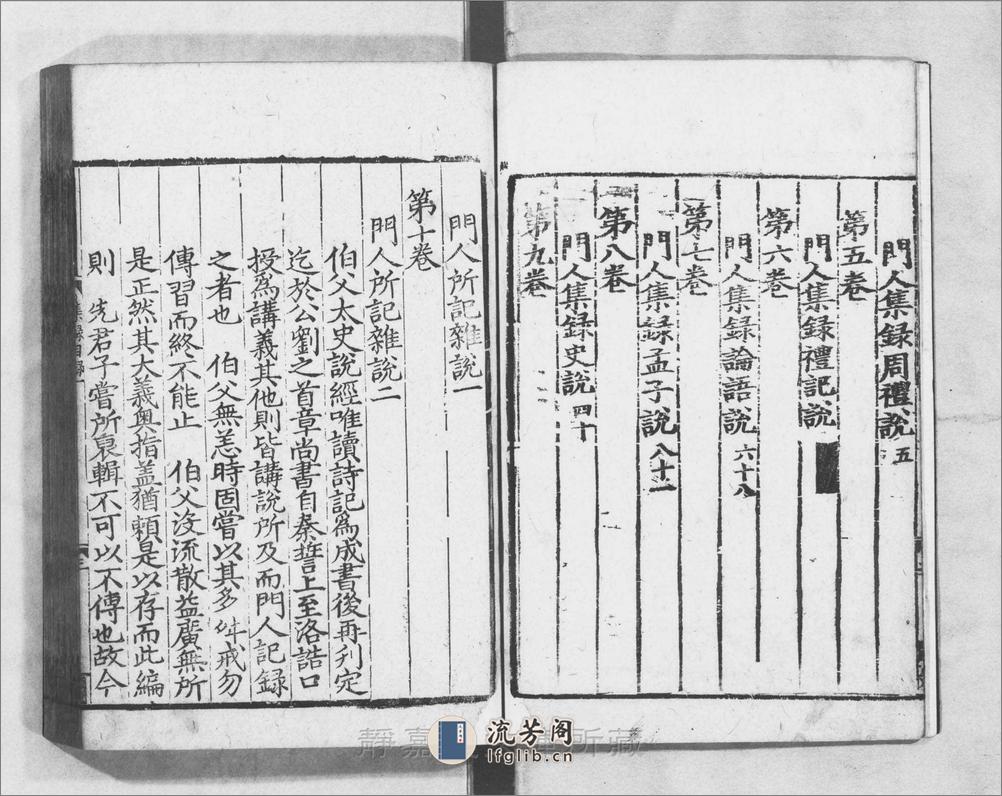 門人集録周禮說五
第五卷
門人集録禮記說
第六卷
門人集録論語說六十八
第七卷
門人集録孟子說八十一
第八卷
門人集録史說四十
第九卷
門人所記雜說一
第十卷
門人所記雜說二
伯父太史說經唯讀詩記爲成書後再刋定
迄於公劉之首章尚書自秦誓上至洛誥口
授爲講義其他則皆講說所及而門人記録
之者也 伯父無恙時固嘗以其多舛戒勿
傳習而終不能止 伯父沒流散益廣無所
是正然其大義奧指蓋猶賴是以存而此編
則 先君子嘗所裒輯不可以不傳也故今
靜嘉 所藏
流芳阁
lfglib.cn